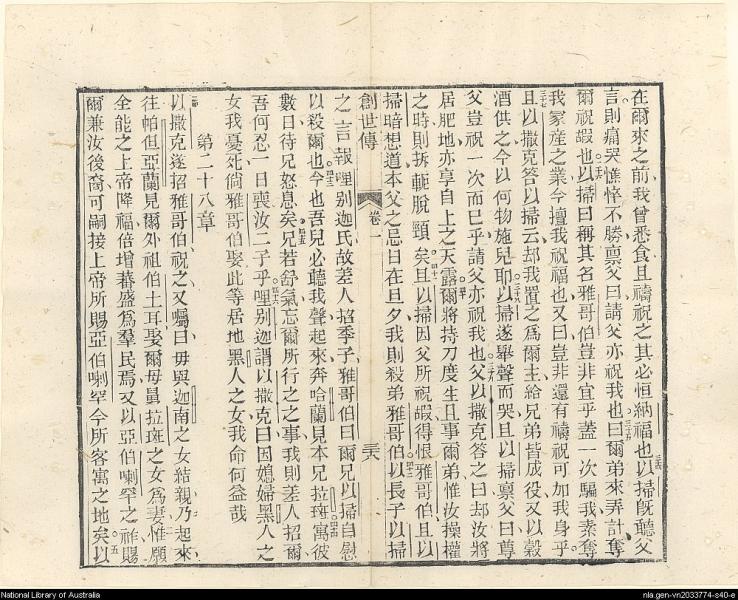 在爾來之前我曾悉食且禱祝之其必恒納福也以掃旣聽父
言則痛哭憔悴不勝禀父曰請父亦祝我也曰爾弟來弄計奪
爾祝嘏也以掃曰稱其名雅哥伯豈非宜乎蓋一次騙我素奪
我家產之業今擅我祝福也又曰豈非還有禱祝可加我身乎
且以撒克答以掃云却我置之為爾主給兄弟皆成役又以穀
酒供之今以何物施兒耶以掃遂舉聲而哭且以掃禀父曰尊
父豈祝一次而已乎請父亦祝我也父以撒克答之曰却汝將
居肥地亦享自上之天露爾將持刀度生且事爾弟惟汝操權
之時則拆軛脫頸矣且以掃因父所祝嘏得恨雅哥伯且以
掃暗想道本父之忌日在旦夕我則殺弟雅哥伯以長子以掃
創世傳 卷一 三六
之言報哩别迦氏故差人招季子雅哥伯曰爾兄以掃自慰
以殺爾也今也吾兒必聽我聲起來奔哈蘭見本兄拉班寓彼
數日待兄怒息矣兄若舒氣忘爾所行之之事我則差人招爾
吾何忍一日喪汝二子乎哩别迦謂以撒克曰因媳婦黑人之
女我憂死倘雅哥伯娶此等居地黑人之女我命何益哉
第二十八章
以撒克遂招雅哥伯祝之又囑曰毋與迦南之女結親乃起來
往帕但亞蘭見爾外祖伯土耳娶爾母舅拉班之女為妻惟願
全能之上帝降福倍增蕃盛為羣民焉又以亞伯喇罕之祚賜
爾兼汝後裔可嗣接上帝所賜亞伯喇罕今所客寓之地矣以
National Library of Australia
nla.gen-vn2033774-s40-e